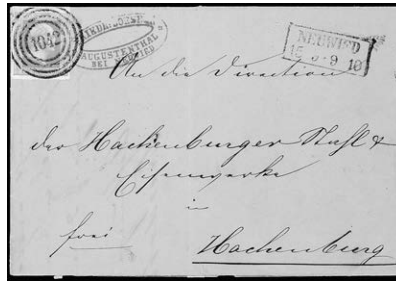 1042
AUGUSTENTHAL
BEI NEUWIED
NEUWIED
An die Direction
der Hachenburger Stahl &
Eisenwerke
in
frei
Hachenburg